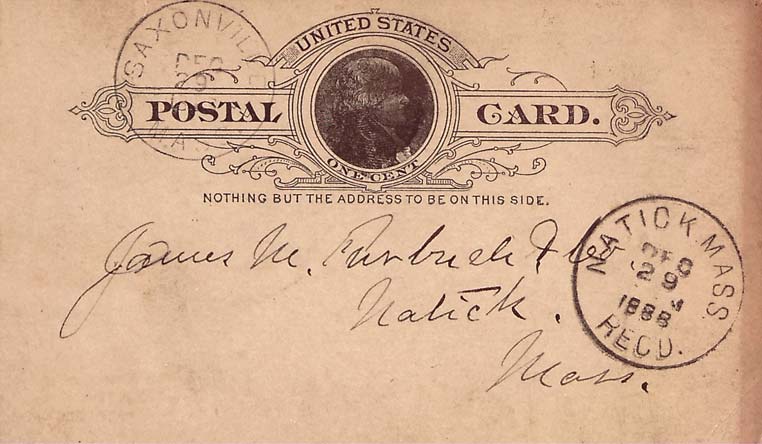 SAXONVILLE
DEC
29
MASS
UNITED STATES
POSTAL CARD.
ONE CENT
NOTHING BUT THE ADDRESS TO BE ON THIS SIDE.
James M. Furbush & Co
Natick.
Mass.
NATICK. MASS.
DEC
29
1888
REC'D.